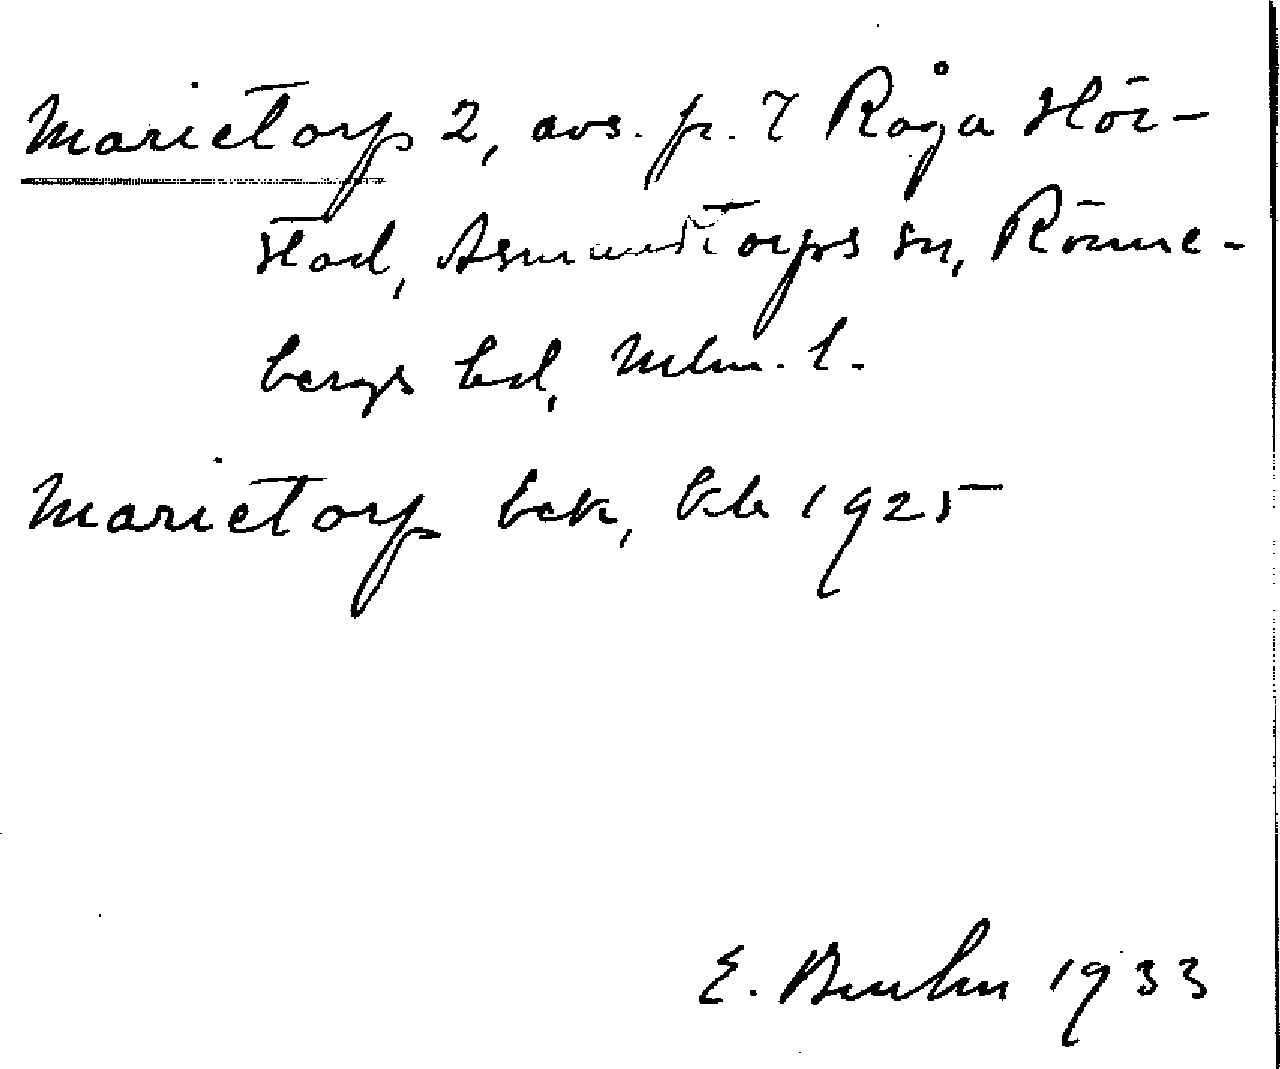 Marietorp 2, avs. fr. 7 Råga Hör-
stad, Asmundtorps sn, Rönne-
bergs hd, Mlm. l.
Marietorp bek, Kb 1925
E. Bruhn 1933